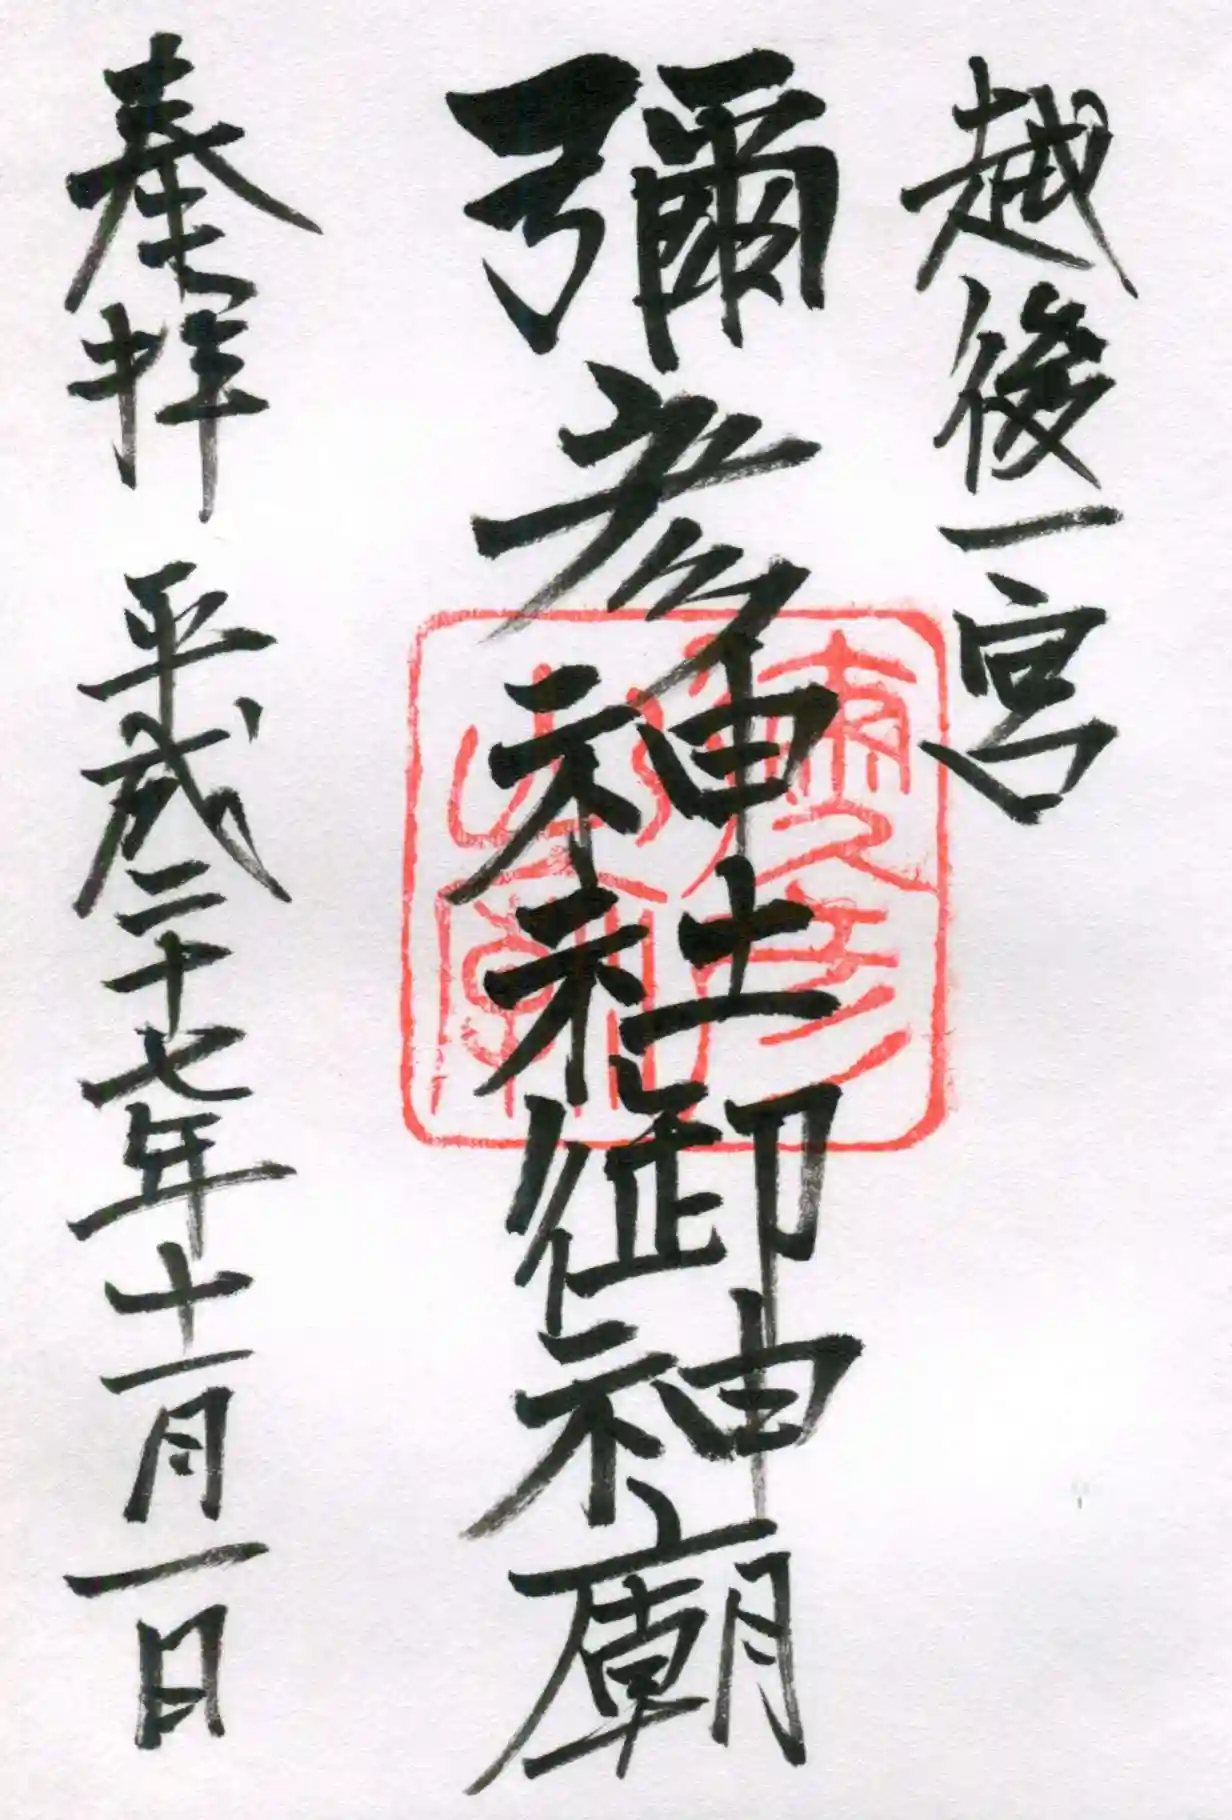 越後一宮
彌彦神社御神廟
奉拝 平成二十七年十一月一日